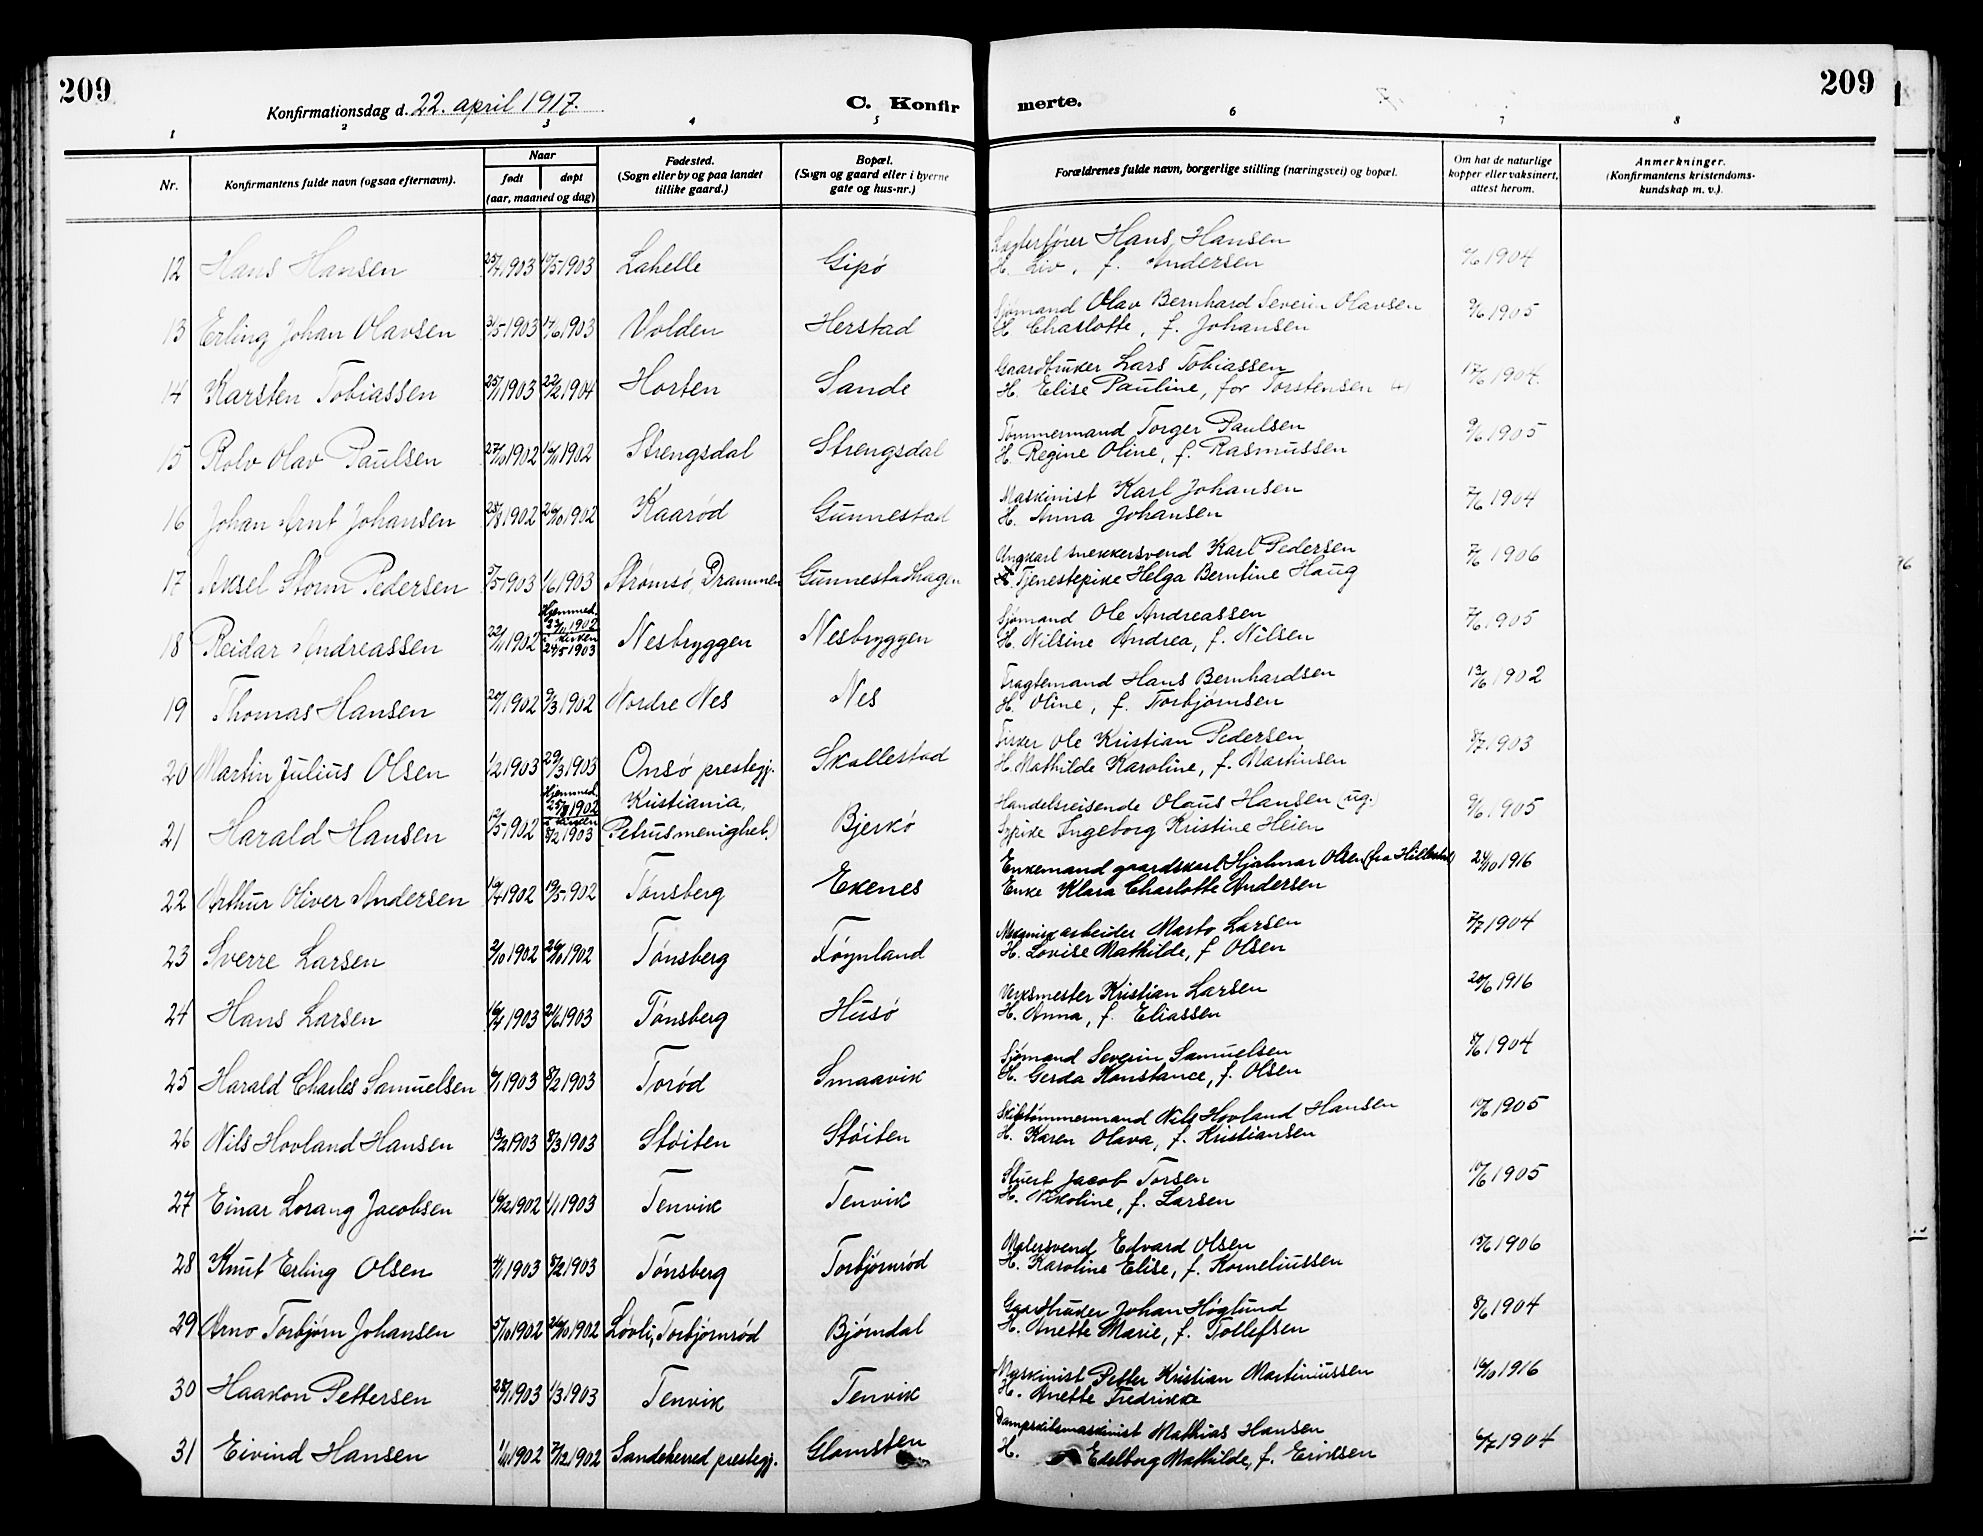 209
Konfirmationsdag d. 22. april 1917.
C. Konfir
merte.
209
1 2 3 4 5 6 7 8
Nr.
Konfirmantens fulde navn (ogsaa efternavn).
Naar
født
døpt
(aar, maaned og dag)
Fødested.
(Sogn eller by og paa landet
tillike gaard.)
Bopæl.
(Sogn og gaard eller i byerne
gate og hus-nr.)
Forældrenes fulde navn, borgerlige stilling (næringsvei) og bopæl.
Om hat de naturlige
kopper eller vaksinert,
attest herom.
Anmerkninger.
(Konfirmantens kristendoms-
kundskap m. v.).
12 Hans Hansen 1903 1903 Lahelle Gipø Hans Hansen 1904
H. Liv, f. Andersen
13 Erling Johan Olavsen 3/5 1903 1903 Volden Herstad Sjømand Olav Bernhard Severin Olavsen 9/6 1905
H. Charlotte, f. Johansen
14 Karsten Tobiassen 25/11 1903 22/2 1904 Horten Sande Gaardbruker Lars Tobiassen 17/6 1904.
H. Elise Pauline, før Torstensen
15 Rolv Olav Paulsen 27/10 1902 16/11 1902 Strengsdal Strengsdal Tømmermand Torger Paulsen 9/6 1905
H. Regine Oline, f. Rasmussen
16 Johan Arnt Johansen 25/8 1902 26/10 1902 Kaarød Gunnestad Maskinist Karl Johansen 7/6 1904
H. Anna Johansen
17 Aksel Storm Pedersen 1903 1/6 1903 Strømsø, Drammen Gunnestadhagen Ungkarl snekkersvend Karl Pedersen 7/6 1906
Tjenestepike Helga Berntine Haug
18 Reidar Andreassen 22/11 1902 Hjemmed. 23/11 1902 i kirken 24/5 1903 Nesbryggen Nesbryggen Sjømand Ole Andreassen 7/6 1905
H. Nilsine Andrea, f. Nilsen
19 Thomas Hansen 20/1 1902 9/3 1902 Nordre Nes Nes Fragtemand Hans Bernhardsen 13/6 1902
H. Oline, f. Torbjørnsen
20 Martin Julius Olsen 1/2 1903 29/3 1903 Onsø prestegj. Skallestad Fisker Ole Kristian Pedersen 8/7 1903
H. Mathilde Karoline, f. Martinsen
21 Harald Hansen 1902 Hjemmed. 1902 i kirken 8/2 1903 Kristiania, Petrusmenighet. Bjerkø Handelsreisende Olaus Hansen (ug.) 9/6 1905
Sypike Ingeborg Kristine Heien
22 Arthur Oliver Andersen 1902 1902 Tønsberg Ekenes Enkemand gaardskarl Hjalmar Olsen (fra Hillestad) 24/10 1916
Enke Klara Charlotte Andersen
23 Sverre Larsen 2/10 1902 26/10 1902 Tønsberg Føynland arbeider Larsen 7/7 1904
H. Lovise Mathilde, f Olsen
24 Hans Larsen 16/4 1903 21/6 1903 Tønsberg Husø Verksmester Kristian Larsen 20/6 1916
H. Anna, f. Eliassen
25 Harald Charles Samuelsen 1903 8/2 1903 Torød Smaavik Sjømand Severin Samuelsen 8/6 1904
H. Gerda Konstance, f. Olsen
26 Nils Hovland Hansen 13/2 1903 8/3 1903 Støiten Støiten Skibstømmermand Nils Hovland Hansen 10/6 1905
H. Karen Olava, f. Kristiansen
27 Einar Lorang Jacobsen 16/12 1902 1/1 1903 Tenvik Tenvik Stuert Jacob Torsen 10/6 1905
H. Nikoline, f. Larsen
28 Knut Erling Olsen 4/1 1903 8/2 1903 Tønsberg Torbjørnrød Malersvend Edvard Olsen 15/6 1906
H. Karoline Elise, f. Korneliussen
29 Arno Torbjørn Johansen 5/10 1902 26/10 1902 Løvli, Torbjørnrød Bjørndal Gaardbruker Johan Høglund 8/6 1904
H. Anette Marie, f. Tollefsen
30 Haakon Pettersen 25/1 1903 1/3 1903 Tenvik Tenvik Maskinist Petter Kristian Martiniussen 16/10 1916
H. Anette Fredrikke
31 Eivind Hansen 1/11 1902 7/12 1902 Sandeherred prestegj. Glomsten Dampskibsmaskinist Mathias Hansen 6/7 1904
H. Edelborg Mathilde, f. Eriksen